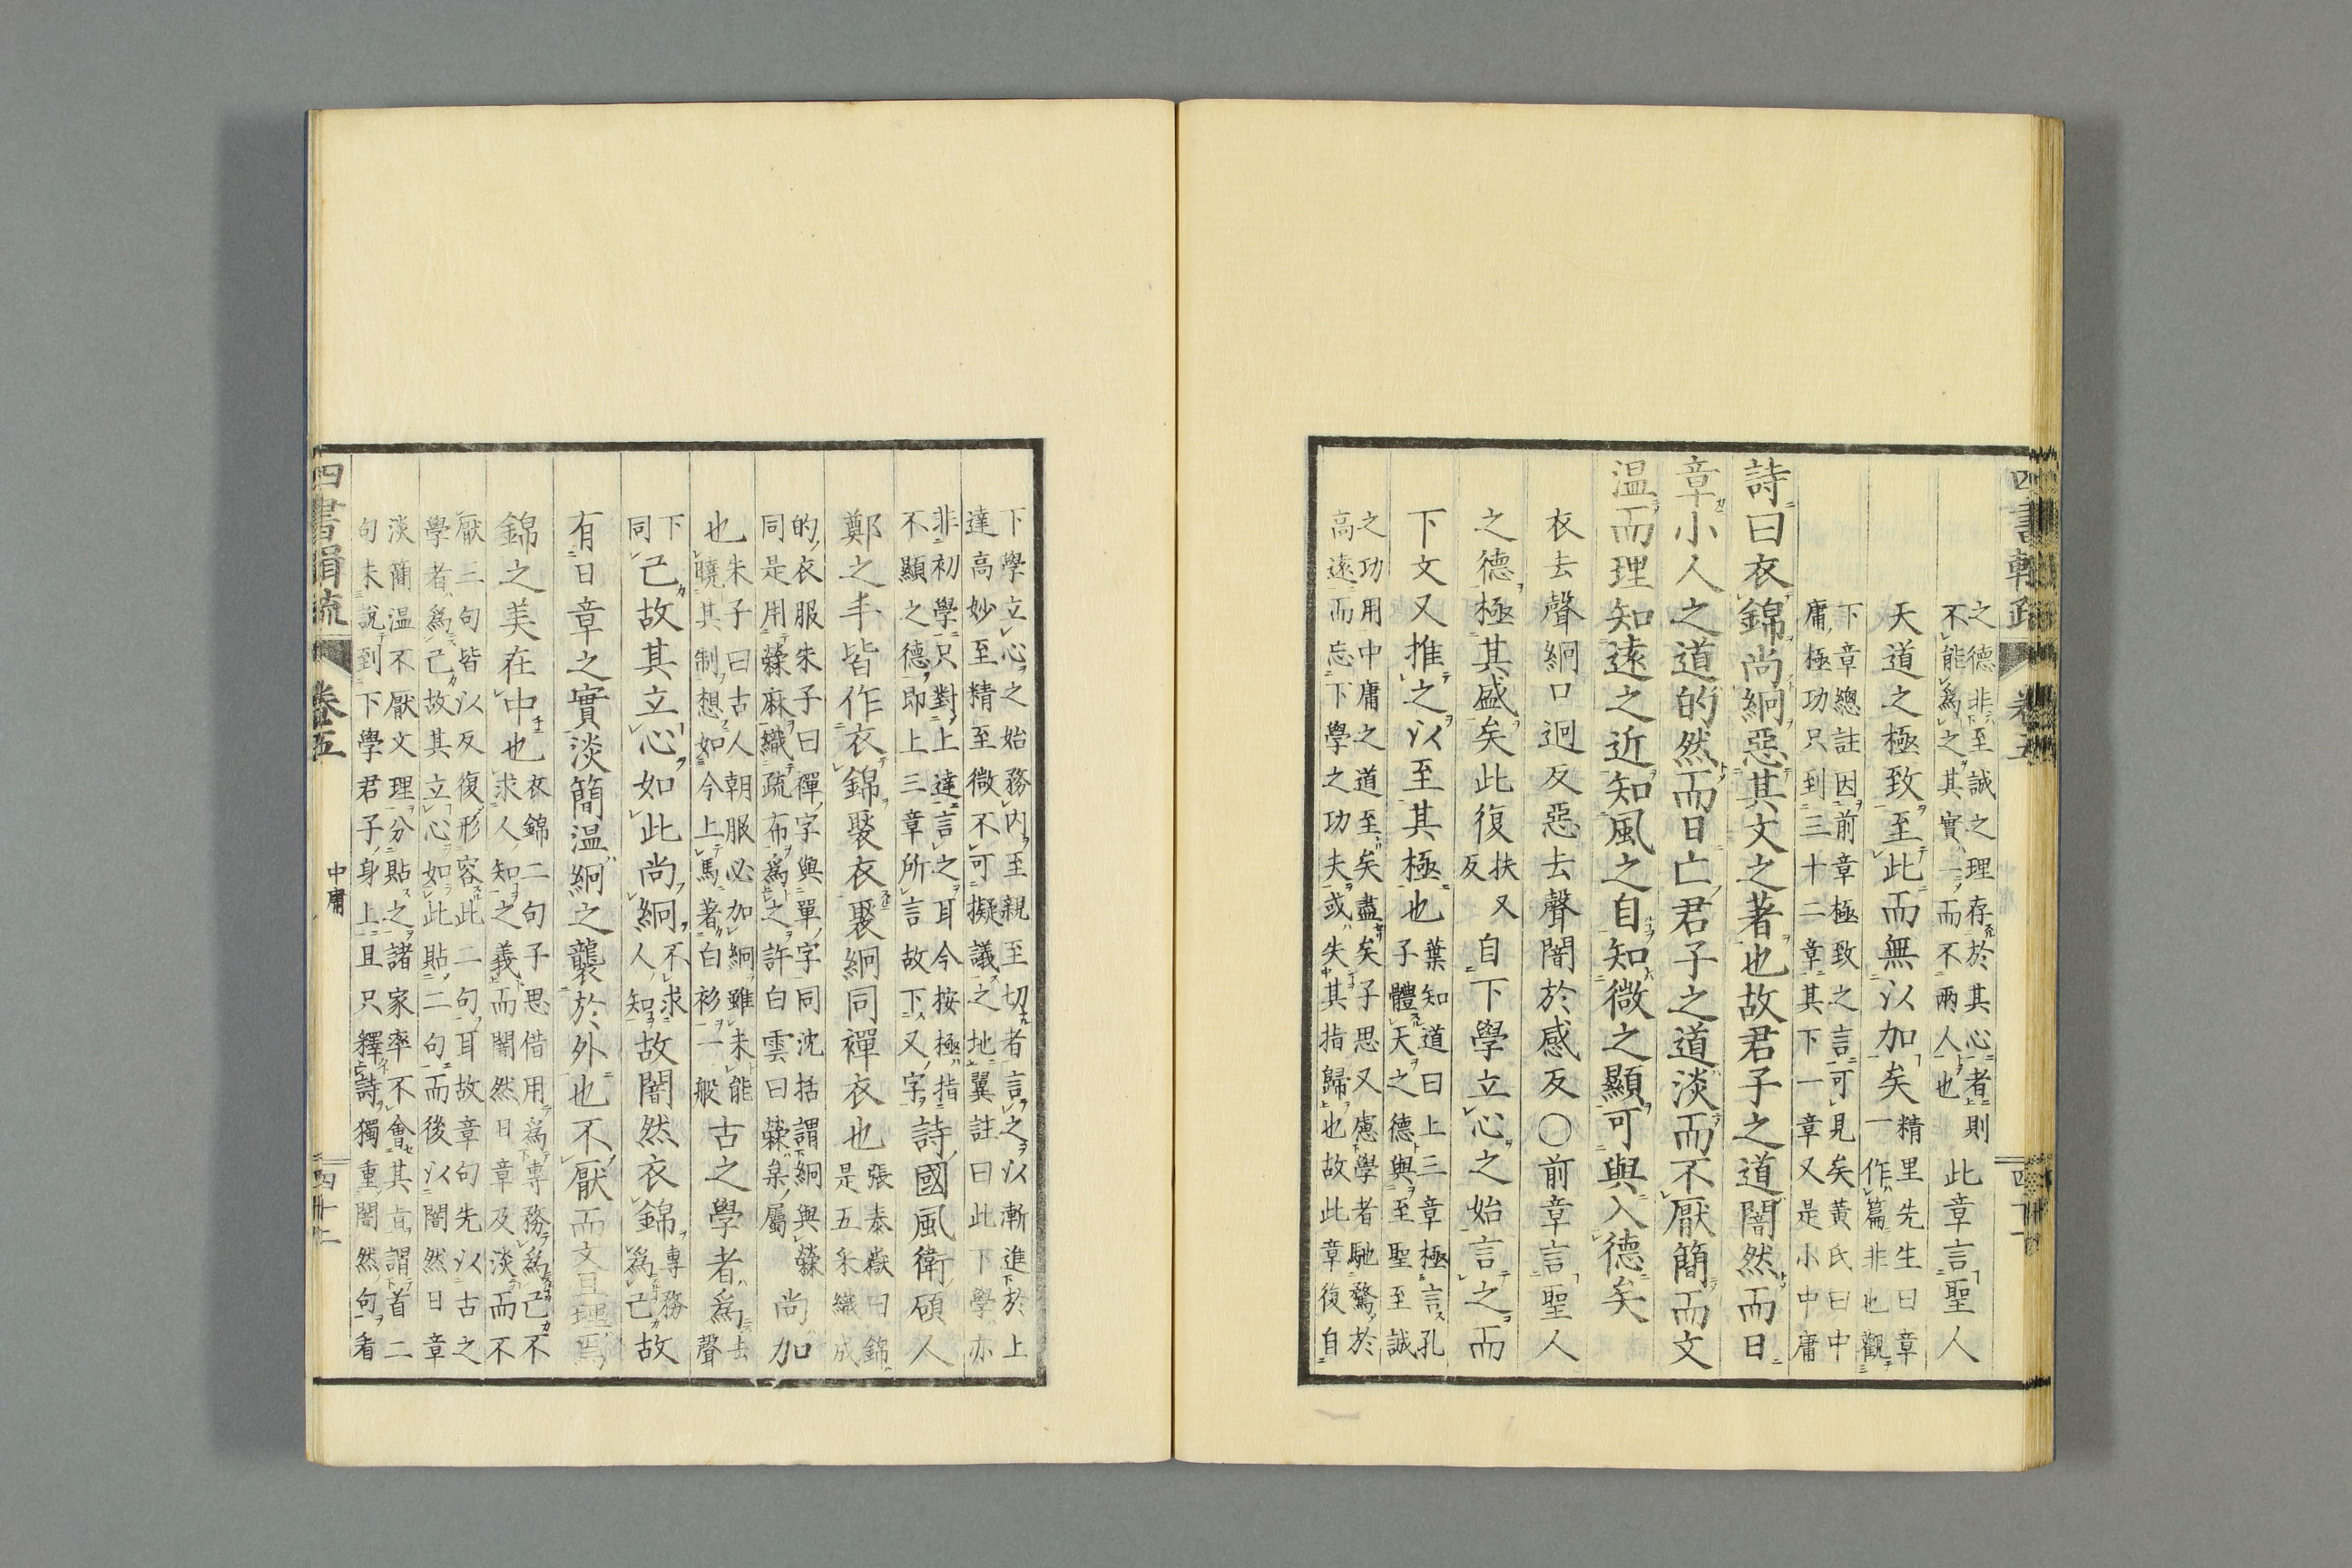 之德非至誠之理存於其心者則
不能爲之其實一而不兩人也
此章言聖人
天道之極致至此而無以加矣
精里先生曰章
一作篇非也觀
下章總註因前章極致之言可見矣黃氏曰中
庸極功只到三十二章其下一章又是小中庸
詩曰衣錦尚絅惡其文之著也故君子之道闇然而日
章小人之道的然而日亡君子之道淡而不厭簡而文
温而理知遠之近知風之自知微之顯可與入德矣
衣去聲絅口迥反惡去聲闇於感反〇前章言聖人
之德極其盛矣此復
扶又
反
自下學立心之始言之而
下文又推之以至其極也
葉知道曰上三章極言孔
子體天之德與至聖至誠
之功用中庸之道至矣盡矣子思又慮學者馳騖於
高遠而忘下學之功夫或失其指歸也故此章復自
四書輯疏 卷五
下學立心之始務內至親至切者言之以漸進於上
達高妙至精至微不可擬議之地翼註曰此下學亦
非初學只對上達言之耳今按極指
不顯之德卽上三章所言故下又字
詩國風衛碩人
鄭之丰皆作衣錦褧衣褧絅同襌衣也
張泰嶽曰錦
是五釆織成
的衣服朱子曰襌字與單字同沈括謂絅與䔛
同是用䔛麻織疏布爲之許白雲曰䔛枲屬
尚加
也
朱子曰古人朝服必加絅雖未能
曉其制想如今上馬著白衫一般
古之學者爲
去
聲
下
同
己故其立心如此尚絅
不求
人知
故闇然衣錦
專務
爲己
故
有日章之實淡簡温絅之襲於外也不厭而文且理焉
錦之美在中也
衣錦二句子思借用爲專務爲己不
求人知之義而闇然日章及淡而不
厭三句皆以反復形容此二句耳故章句先以古之
學者爲己故其立心如此貼二句而後以闇然日章
淡簡温不厭文理分貼之諸家率不會其旨謂首二
句未說到下學君子身上且只釋詩獨重闇然句看
四書輯疏 卷五 中庸 四十二